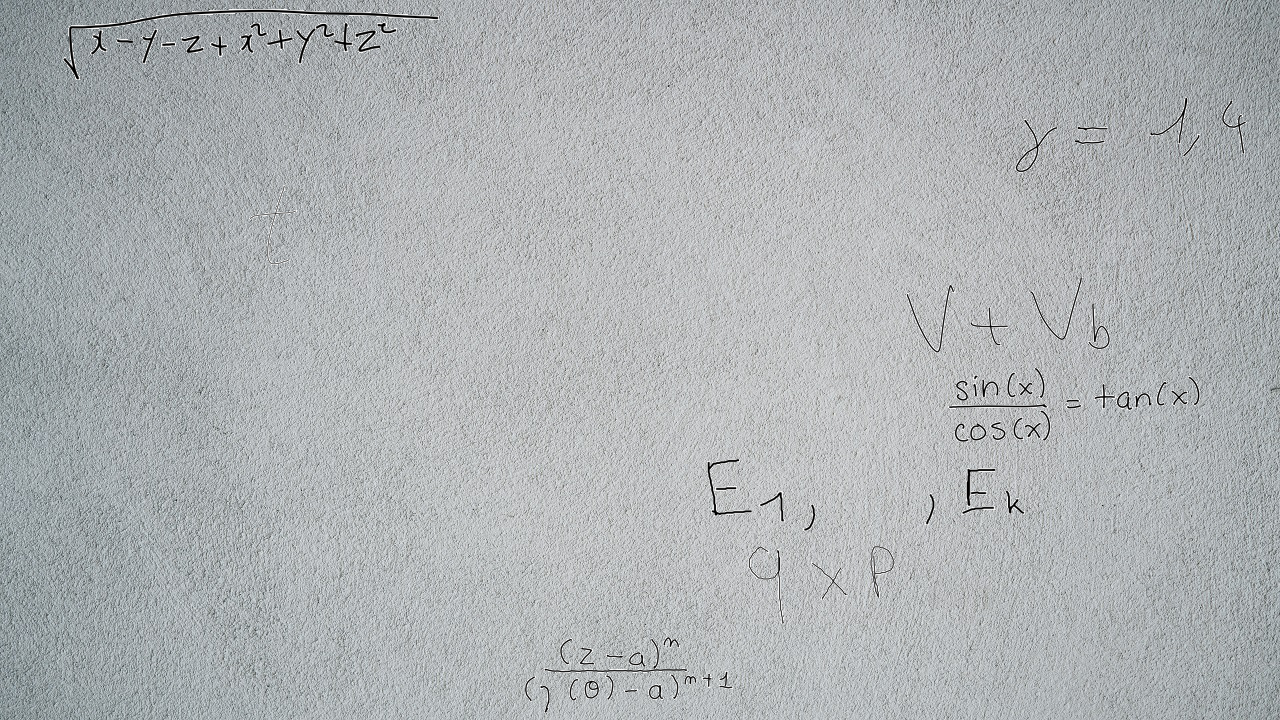 √(x-y-z+x²+y²+z²)
γ = 1,4
t
V + V_b
sin(x)/cos(x) = tan(x)
E_1, , E_k
q × p
(z-a)^n/(γ(θ)-a)^{n+1}